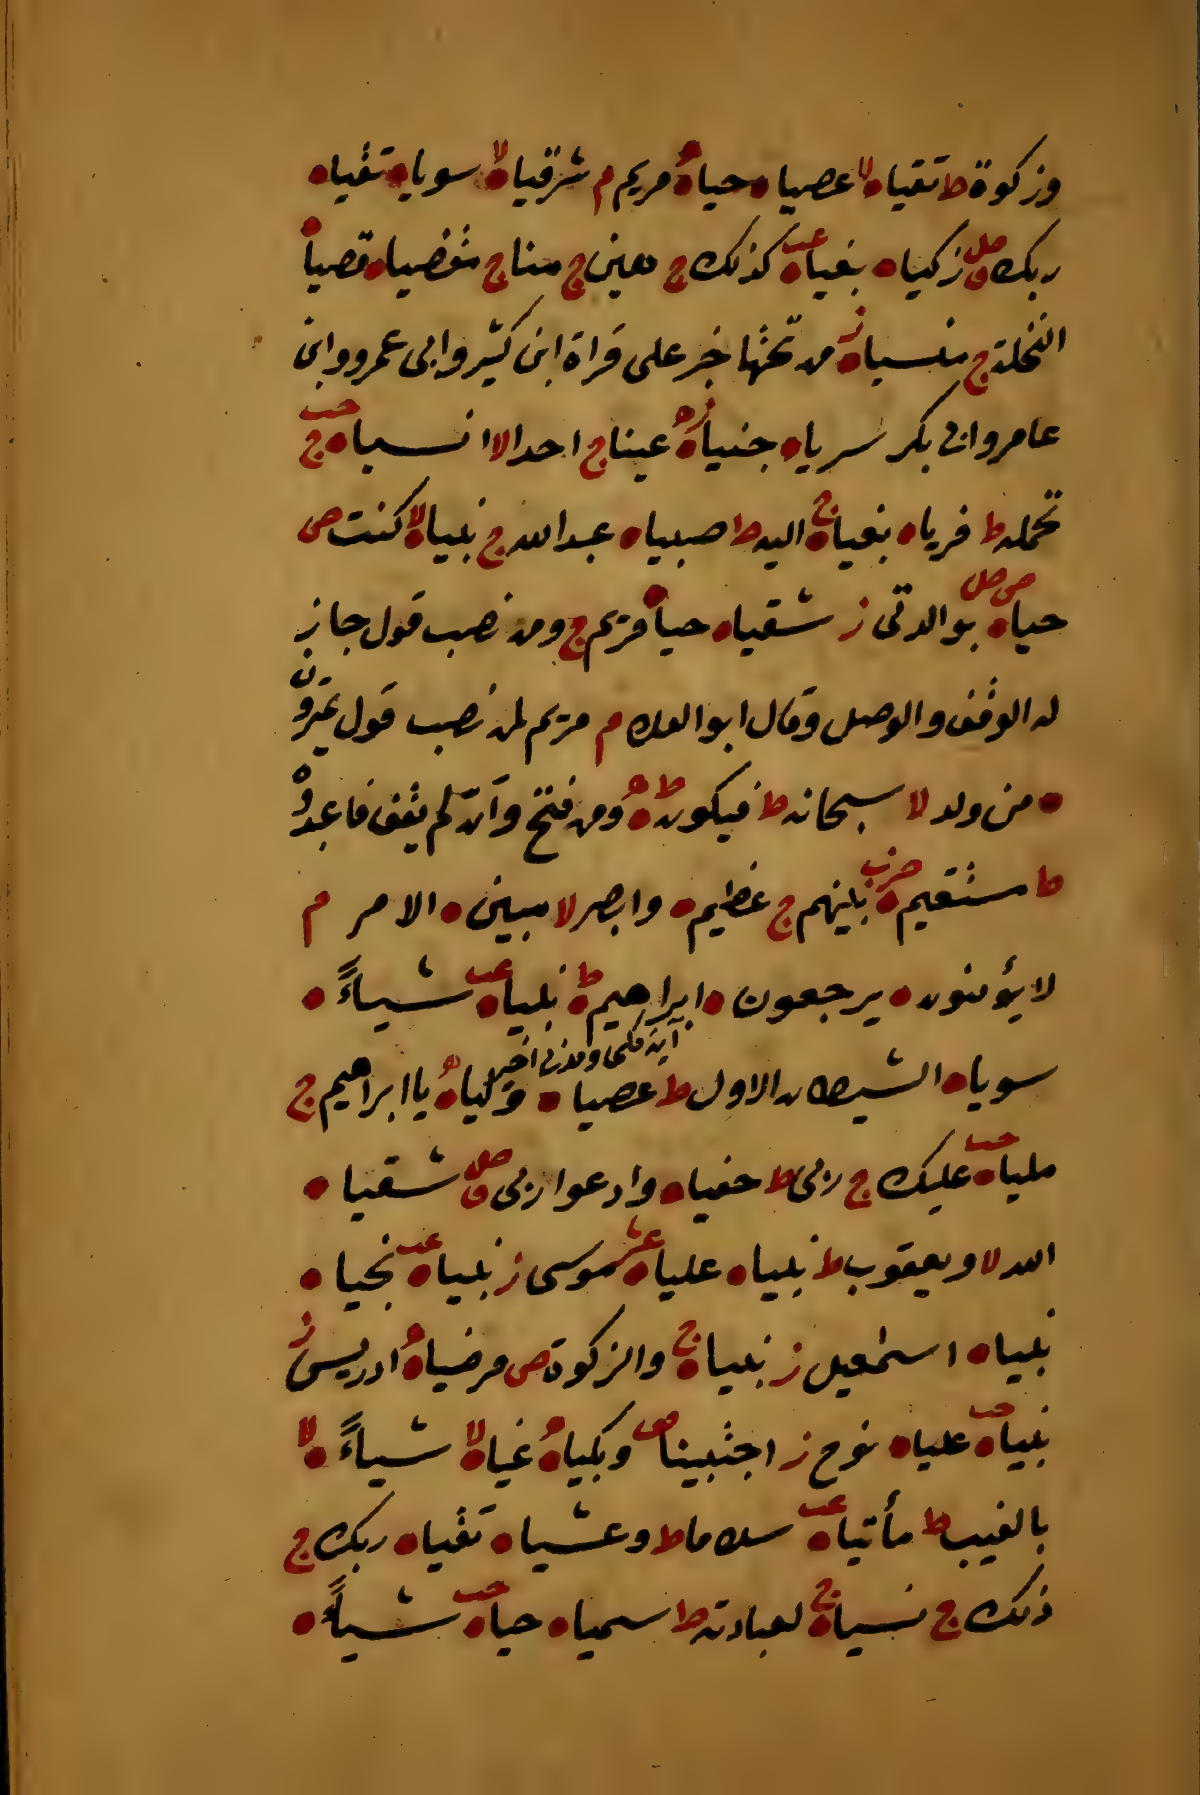 وزكوة ط تقيا ه لا عصيا ه حيا ه مريم م شرقيا ه لا سويا ه تقيا ه
ربك ق صلى زكيا ه بغيا ه عب كذلك ج هين ج منا ج مقضيا ه قصيا ه
النخلة ج منسيا ه ز من تحتها خير على قراة ابن كثير وابى عمرو وابن
عامر وابى بكر سريا ه جنيا ه ز عينا ج احدا لا انسيا ه ج حب
تحمله ط فريا ه بغيا ه ج اليه ط صبيا ه عبد الله ج نبيا ه لا كنت ص
حيا ه ص صلى بوالدتى ز شقيا ه حيا ه مريم ج ومن نصب قول جاز
له الوقف والوصل وقال ابو العلاء م مريم لمن نصب قول يمترون
ه من ولد لا سبحانه ط فيكون ه ط ومن فتح وان لم يقف فاعبدوه
ط مستقيم ه حزب بينهم ج عظيم ه وابصر لا مبين ه الامر م
لا يؤمنون ه يرجعون ه ابراهيم ه ط نبيا ه عب شياءً ه
آية مكى ومدنى اخير
سويا ه الشيطان الاول ط عصيا ه وليا ه يا ابراهيم ج
مليا ه حب عليك ج ربى ط حفيا ه وادعوا ربى ق صلى شقيا ه
الله لا ويعقوب ط نبيا ه عليا ه عشر موسى ز نبيا ه عب نجيا ه
نبيا ه اسمعيل ز نبيا ه ج والزكوة ص مرضيا ه ادريس ز
نبيا ه حب عليا ه نوح ز اجتبينا ص وبكيا ه غيا ه لا شياءً ه لا
بالغيب ط مأتيا ه عب سلاما ط وعشيا ه تقيا ه ربك ج
ذلك ج نسيا ه ج لعبادته ط سميا ه حيا ه حب شياءً ه